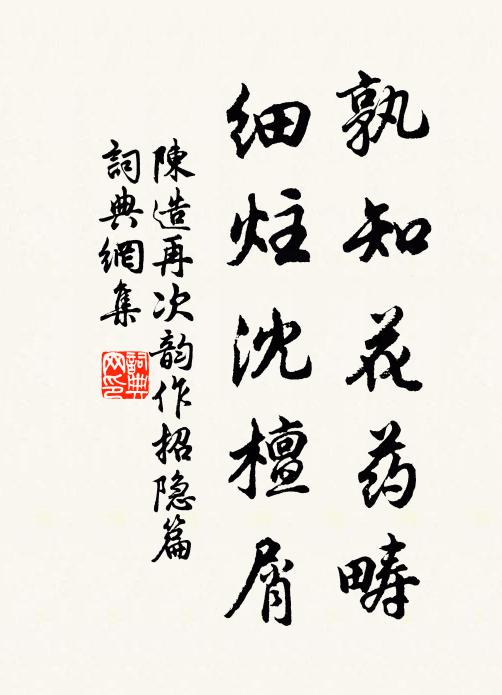 孰知花药畴
细炷沈檀屑
陳造再次韵作招隐篇
詞典網集
詞典
网印